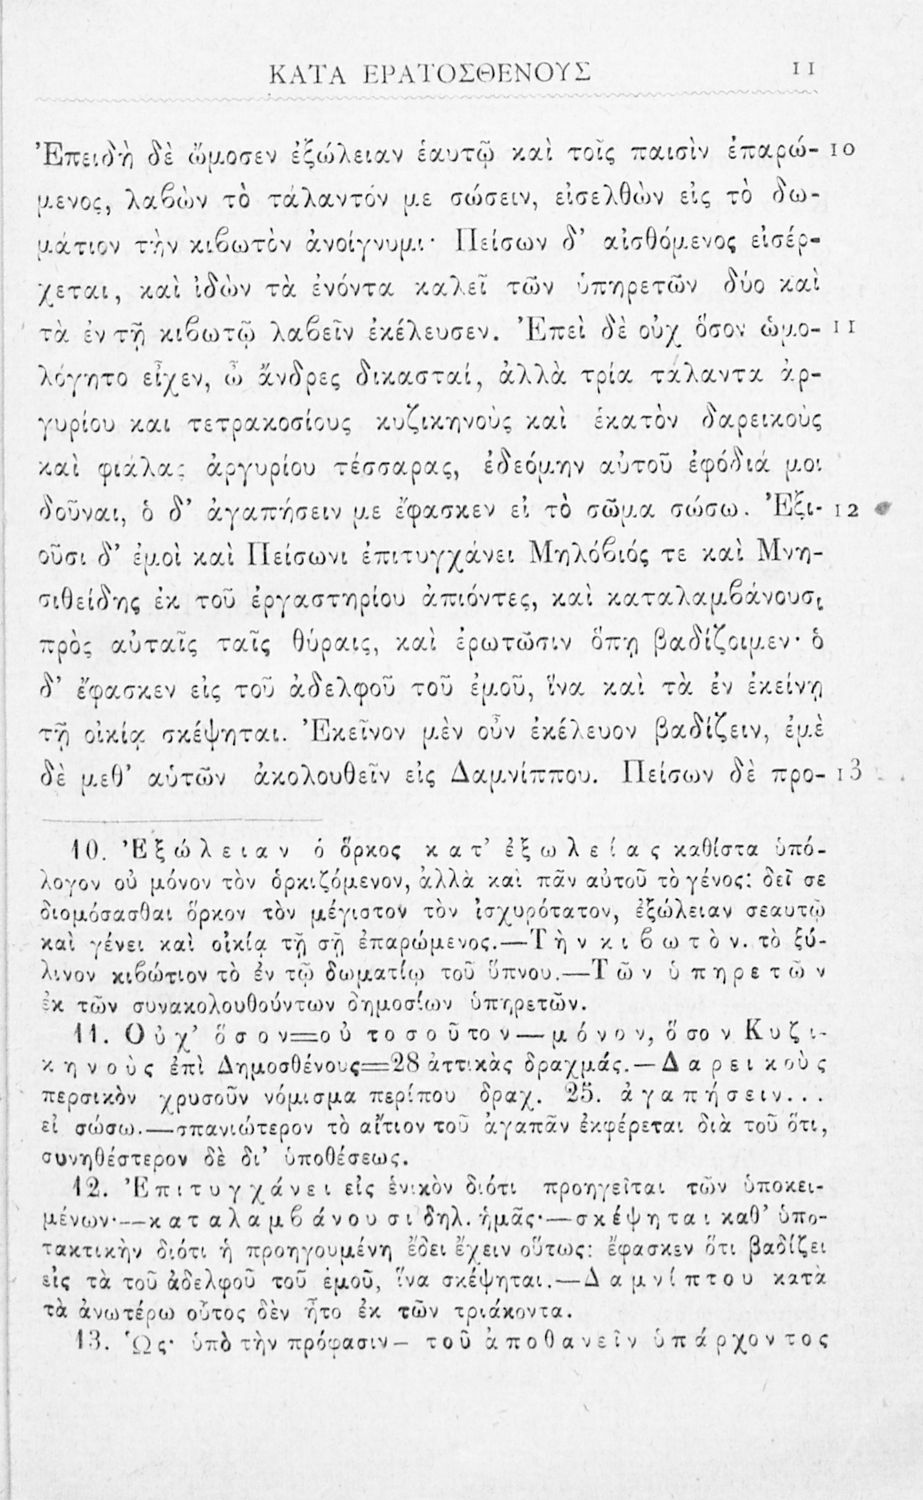 ΚΑΤΑ ΕΡΑΤΟΣΘΕΝΟΥΣ 11
Ἐπειδὴ δὲ ὤμοσεν ἐξώλειαν ἑαυτῷ καὶ τοῖς παισὶν ἐπαρώ- 10
μενος, λαϐὼν τὸ τάλαντόν με σώσειν, εἰσελθὼν εἰς τὸ δω-
μάτιον τὴν κιϐωτὸν ἀνοίγνυμι· Πείσων δ’ αἰσθόμενος εἰσέρ-
χεται, καὶ ἰδὼν τὰ ἐνόντα καλεῖ τῶν ὑπηρετῶν δύο καὶ
τὰ ἐν τῇ κιϐωτῷ λαϐεῖν ἐκέλευσεν. Ἐπεὶ δὲ οὐχ ὅσον ὡμο- 11
λόγητο εἶχεν, ὦ ἄνδρες δικασταί, ἀλλὰ τρία τάλαντα ἀρ-
γυρίου και τετρακοσίους κυζικηνοὺς καὶ ἑκατὸν δαρεικοὺς
καὶ φιάλας ἀργυρίου τέσσαρας, ἐδεόμην αὐτοῦ ἐφόδιά μοι
δοῦναι, ὁ δ’ ἀγαπήσειν με ἔφασκεν εἰ τὸ σῶμα σώσω. Ἐξι- 12
οῦσι δ’ ἐμοὶ καὶ Πείσωνι ἐπιτυγχάνει Μηλόϐιός τε καὶ Μνη-
σιθείδης ἐκ τοῦ ἐργαστηρίου ἀπιόντες, καὶ καταλαμϐάνουσι
πρὸς αὐταῖς ταῖς θύραις, καὶ ἐρωτῶσιν ὅπῃ βαδίζοιμεν· ὁ
δ’ ἔφασκεν εἰς τοῦ ἀδελφοῦ τοῦ ἐμοῦ, ἵνα καὶ τὰ ἐν ἐκείνῃ
τῇ οἰκίᾳ σκέψηται. Ἐκεῖνον μὲν οὖν ἐκέλευον βαδίζειν, ἐμὲ
δὲ μεθ’ αὑτῶν ἀκολουθεῖν εἰς Δαμνίππου. Πείσων δὲ προ- 13
10. Ἐξώλειαν ὁ ὅρκος κατ’ ἐξωλείας καθίστα ὑπό-
λογον οὐ μόνον τὸν ὁρκιζόμενον, ἀλλὰ καὶ πᾶν αὐτοῦ τὸ γένος: δεῖ σε
διομόσασθαι ὅρκον τὸν μέγιστον τὸν ἰσχυρότατον, ἐξώλειαν σεαυτῷ
καὶ γένει καὶ οἰκίᾳ τῇ σῇ ἐπαρώμενος.—Τὴν κιϐωτὸν. τὸ ξύ-
λινον κιϐώτιον τὸ ἐν τῷ δωματίῳ τοῦ ὕπνου.—Τῶν ὑπηρετῶν
ἐκ τῶν συνακολουθούντων δημοσίων ὑπηρετῶν.
11. Οὐχ’ ὅσον=οὐ τοσοῦτον—μόνον, ὅσον Κυζι-
κηνοὺς ἐπὶ Δημοσθένους=28 ἀττικὰς δραχμάς.—Δαρεικοὺς
περσικὸν χρυσοῦν νόμισμα περίπου δραχ. 25. ἀγαπήσειν...
εἰ σώσω.—σπανιώτερον τὸ αἴτιον τοῦ ἀγαπᾶν ἐκφέρεται διὰ τοῦ ὅτι,
συνηθέστερον δὲ δι’ ὑποθέσεως.
12. Ἐπιτυγχάνει εἰς ἑνικὸν διότι προηγεῖται τῶν ὑποκει-
μένων·—καταλαμϐάνουσι δηλ. ἡμᾶς·—σκέψηται καθ’ ὑπο-
τακτικὴν διότι ἡ προηγουμένη ἔδει ἔχειν οὕτως: ἔφασκεν ὅτι βαδίζει
εἰς τὰ τοῦ ἀδελφοῦ τοῦ ἐμοῦ, ἵνα σκέψηται.—Δαμνίπτου κατὰ
τὰ ἀνωτέρω οὗτος δὲν ἦτο ἐκ τῶν τριάκοντα.
13. Ὡς· ὑπὸ τὴν πρόφασιν— τοῦ ἀποθανεῖν ὑπάρχοντος